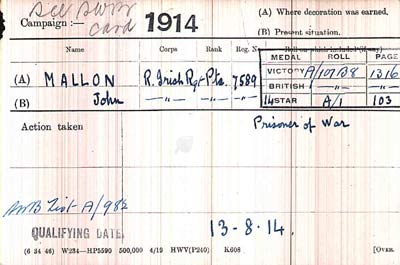 See SWB card
Campaign :— 1914
(A) Where decoration was earned.
(B) Present situation.
Name Corps Rank Reg. No. Roll on which included (if any)
MEDAL ROLL PAGE
(A) MALLON R. Irish Rgt Pte. 7589 VICTORY A/107B8 1316
(B) John —"— —"— BRITISH —"— —"—
14 STAR A/1 103
Action taken
Prisoner of War
List A/982
QUALIFYING DATE, 13-8-14.
(6 34 46) W234—HP5590 500,000 4/19 HWV(P240) K608 [OVER.